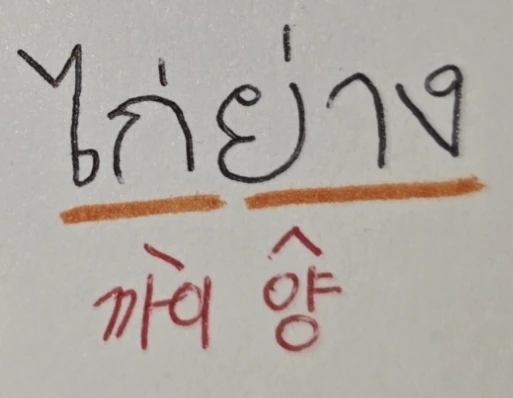 ไก่ย่าง
까이 양